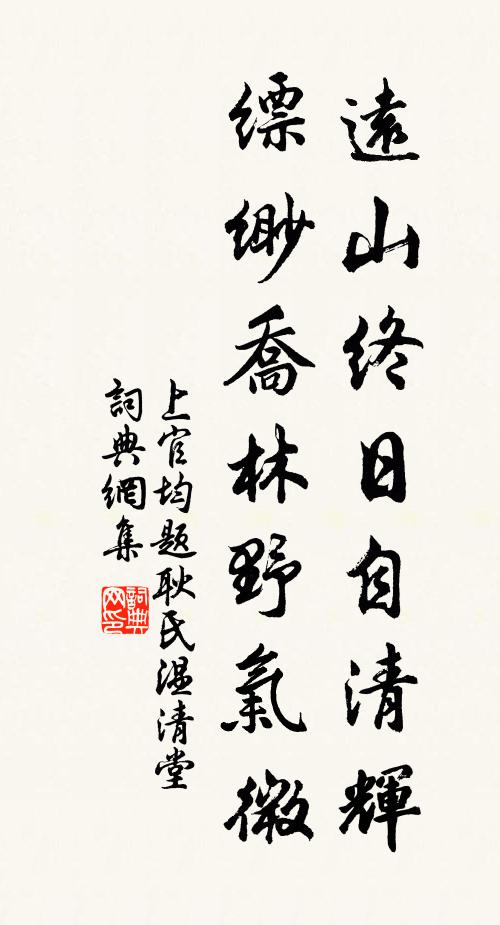 遠山終日自清輝
縹緲喬林野氣微
上官均题耿氏温清堂
詞典網集
詞典
网印